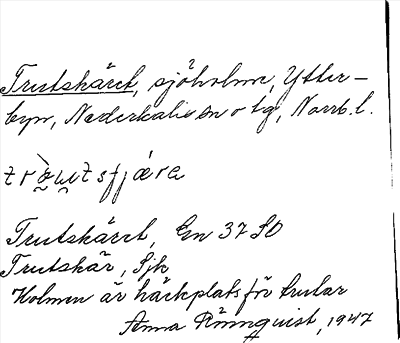 Trutskäret, sjöholme, Ytter-
byn, Nederkalix sn o tg, Norrb. l.
Trutskäret, Gn 37 SO
Trutskär, Sjk
Holmen är häckplats för trutar
Anna Rönnquist, 1947